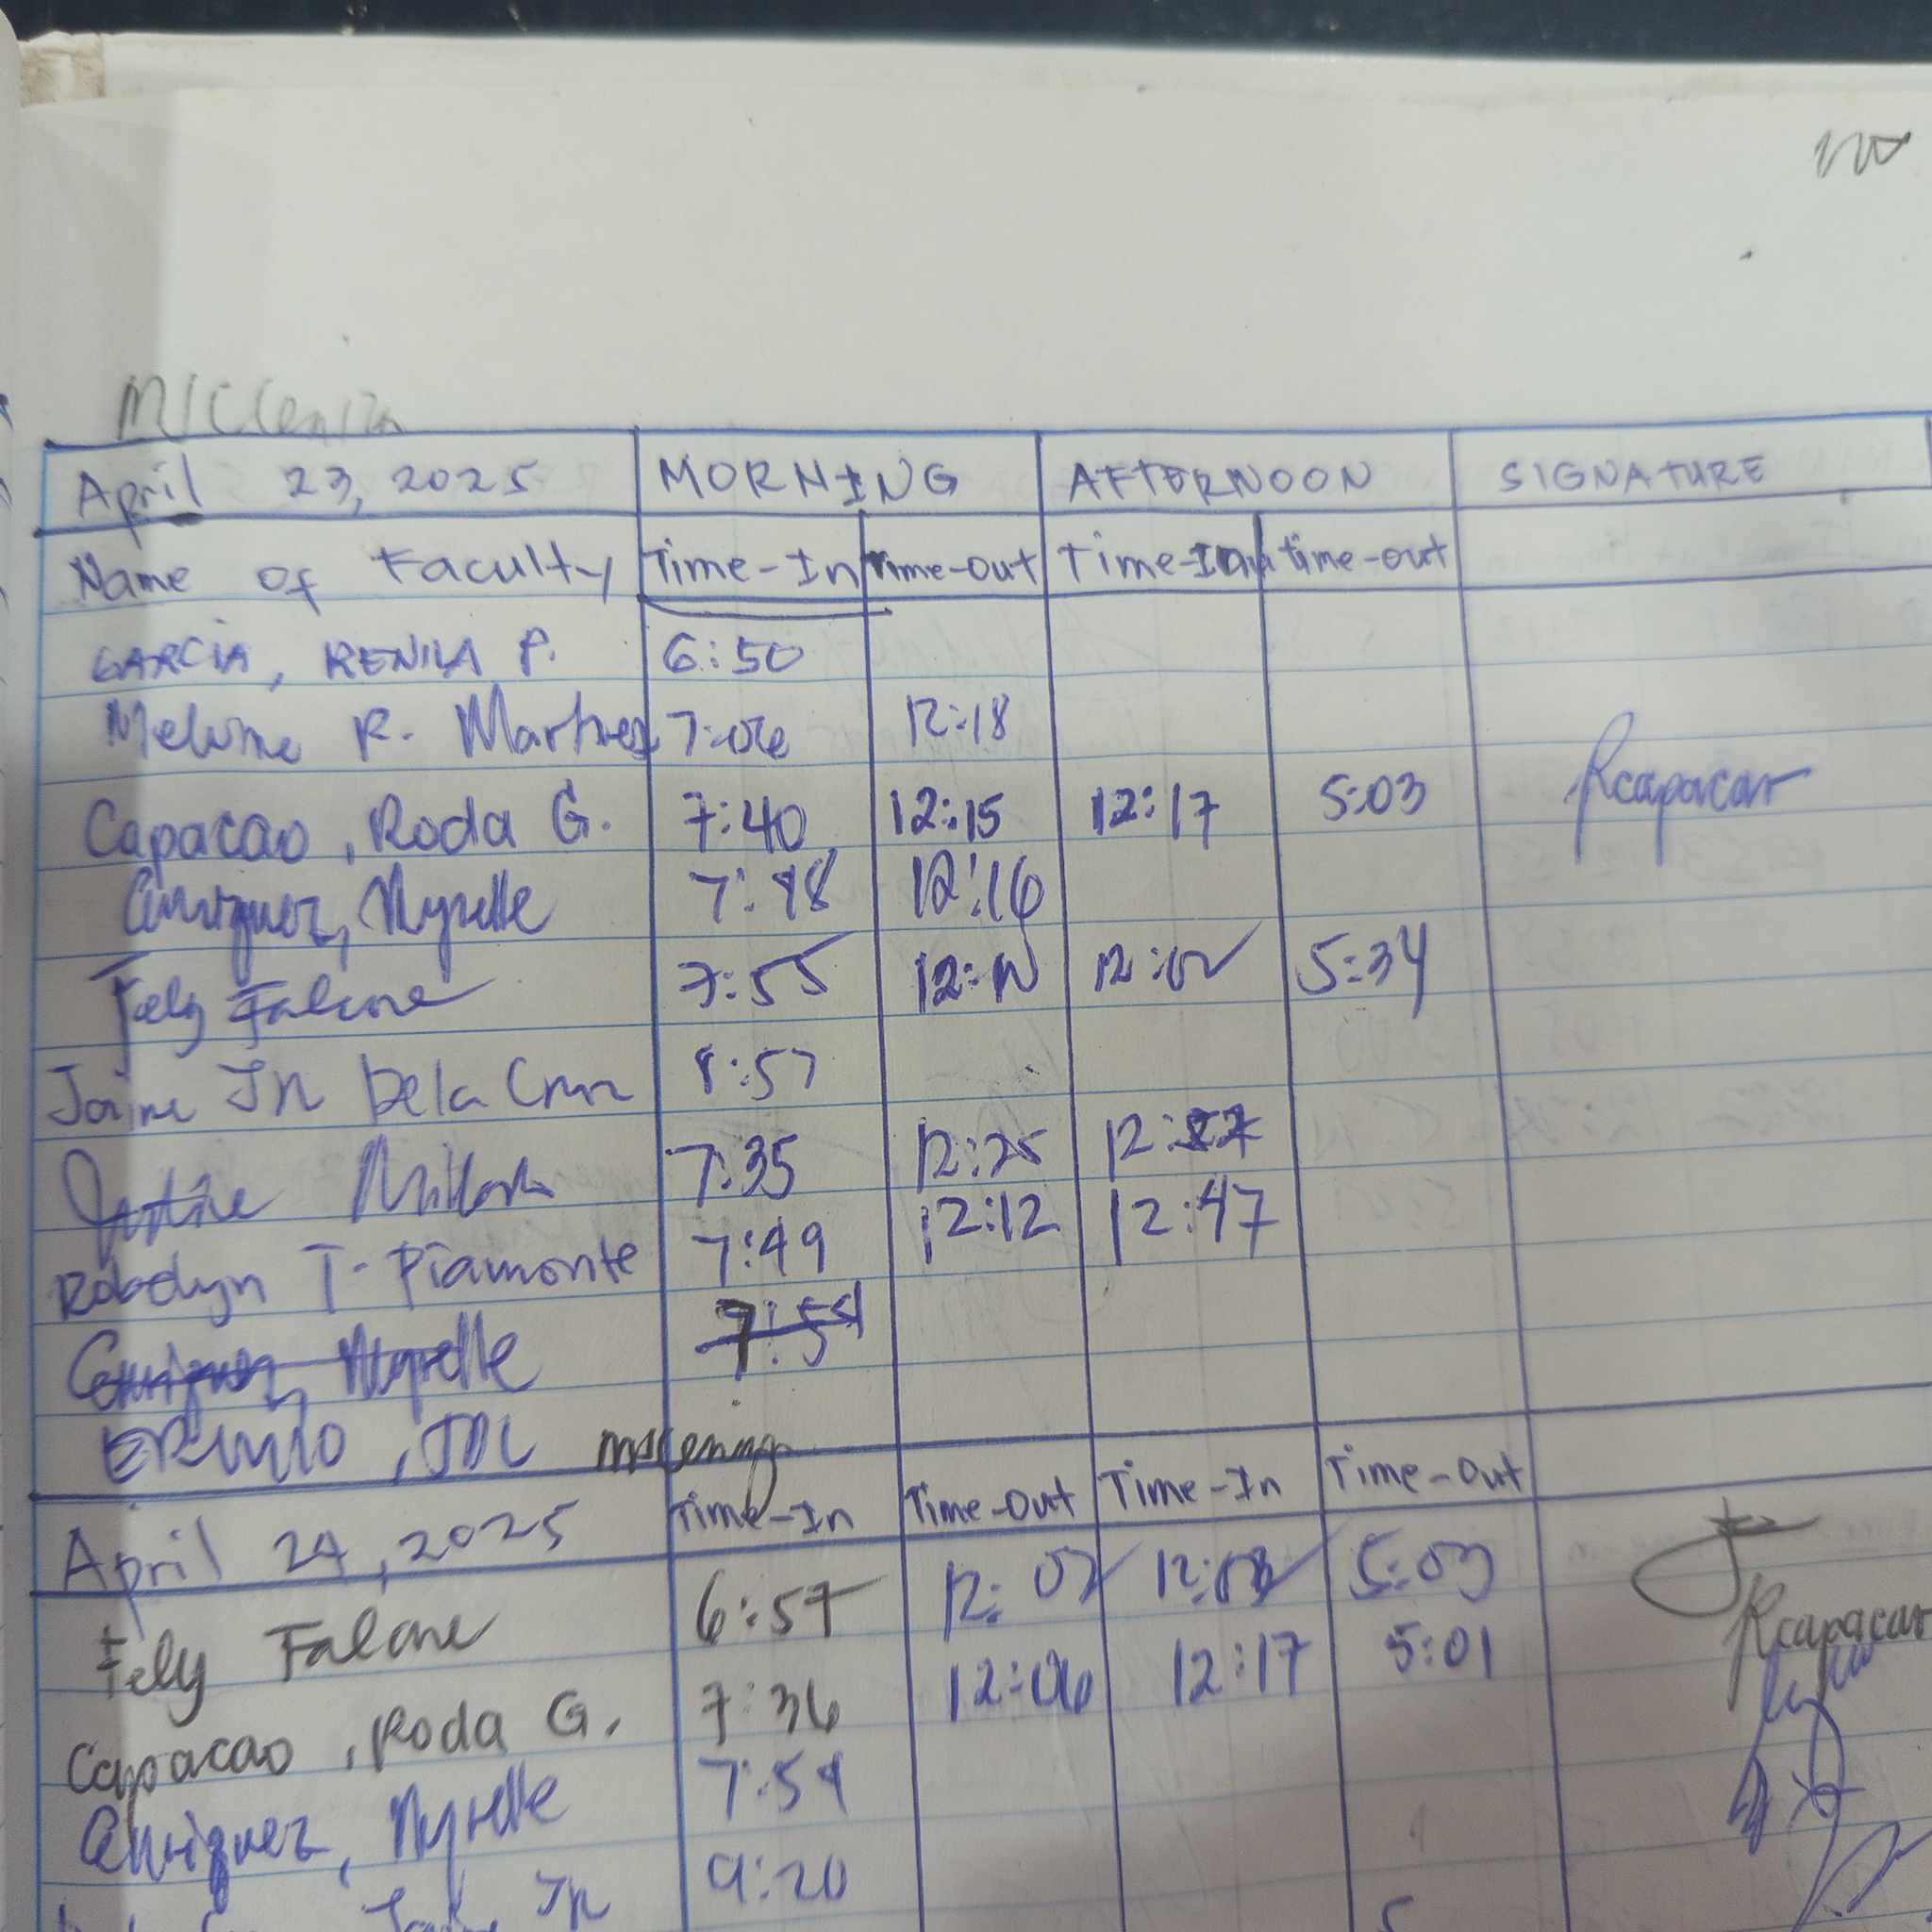 April 23, 2025 MORNING AFTERNOON SIGNATURE
Name of Faculty Time-In Time-Out Time-In time-out
GARCIA, RENILA P. 6:50
R. Martinez 7:06 12:18
Capacao, Roda G. 7:40 12:15 12:17 5:03 Rcapacao
Enriquez, Myrelle 7:48 12:16
Fely Falcone 7:55 12:10 12:02 5:34
Jaime JR Dela Cruz 8:57
7:35 12:25 12:27
Robelyn T. Piamonte 7:49 12:12 12:47
Enriquez, Myrelle 7:54
April 24, 2025 Time-In Time-Out Time-In Time-Out
Fely Falcone 6:57 12:02 12:03 5:03
Capacao, Roda G. 7:36 12:06 12:17 5:01 Rcapacao
Enriquez, Myrelle 7:54
Jaime JR 9:20